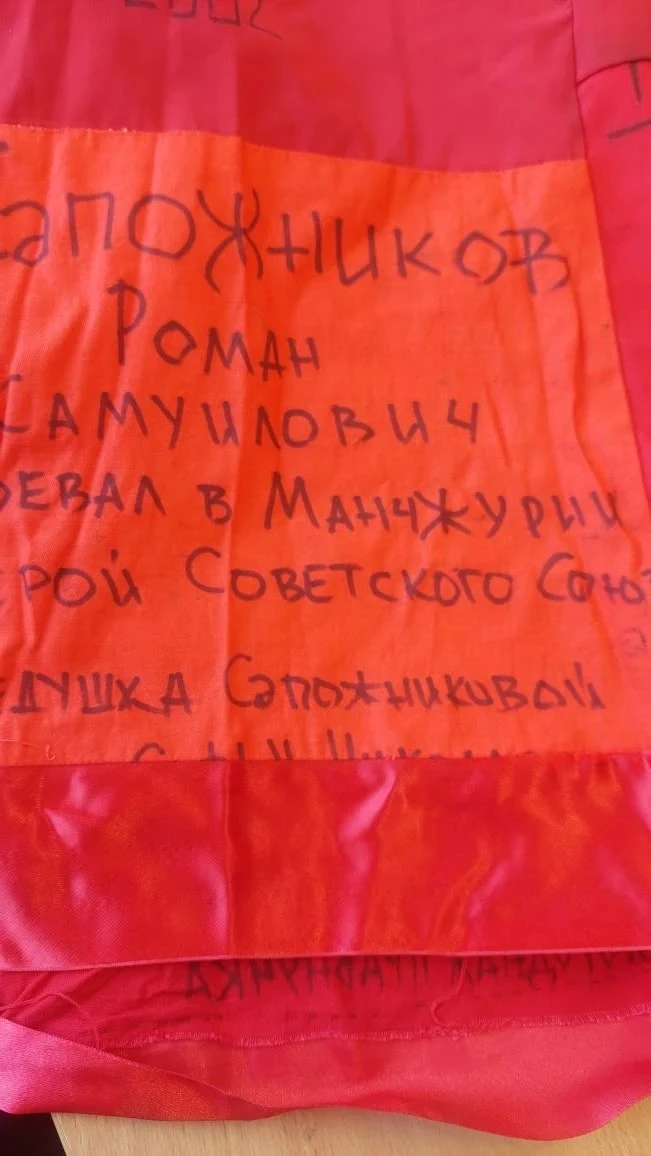 2002
Сапожников
Роман
Самуилович
оевал в Манчжурии
ерой Советского Союз
едушка Сапожниковой